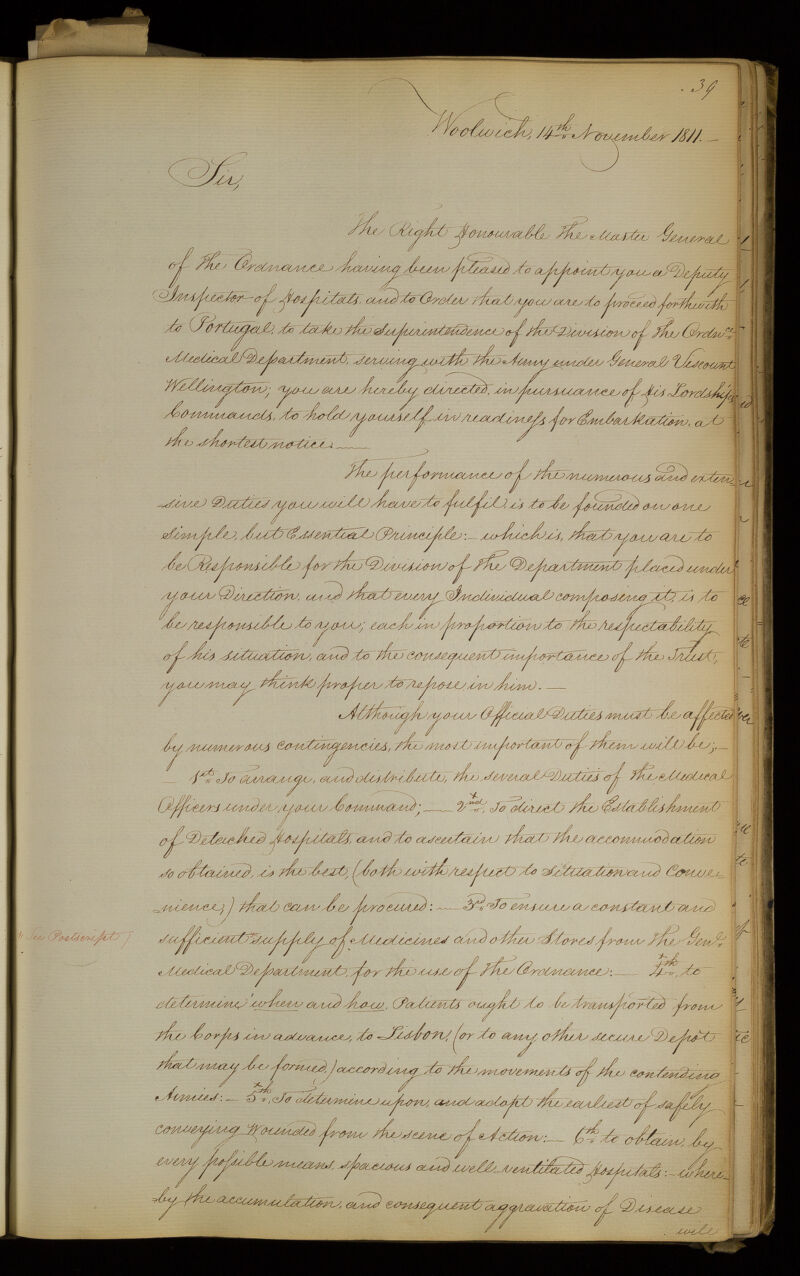 39
Woolwich, 14th November 1811.—
Sir,
The Right Honourable The Master General
of The Ordnance having been pleased to appoint you a Deputy
Inspector of Hospitals, and to Order that you are to proceed forthwith
to Portugal, to take the Superintendence of the Division of The Ordnce
Medical Department, serving with the Army under General Viscount
Wellington; you are hereby directed, in pursuance of His Lordship's
Commands, to hold yourself in readiness for Embarkation, at
the shortest notice.——
The performance of the numerous and exten-
sive Duties you will have to fulfil, is to be founded on one
Simple, but Essential Principle:— which is, that you are to
be Responsible for the Division of The Department placed under
your Direction, and that every Individual composing it, is to
be responsible to you; each in proportion to the respectability
of his situation, and to the consequent importance of the Trust,
you may think proper to repose in him.—
Although your Official Duties must be affected
by numerous contingencies, the most important of them will be;—
— 1st To arrange, and distribute, the several Duties of The Medical
Officers under your Command;— 2nd, To direct the Establishment
of Detached Hospitals, and to ascertain that the accommodation
so obtained, is the best, (both with respect to Situation and Conve-
nience,) that can be procured:— 3rd To ensure a constant and
(See Postscript)
sufficient supply of Medicines and other Stores from The Genl
Medical Department, for the use of The Ordnance:— 4th, to
determine when and how, Patients ought to be transported from
the Corps in advance, to Lisbon, (or to any other secure Depôt
that may be formed,) according to the movements of the contending
Armies:— 5th, To determine upon, and adopt the earliest of safely
conveying Wounded from the scene of Action:— 6th to obtain, by
every possible means, spacious and well ventilated Hospitals:— where-
by the accumulation, and consequent aggravation of Disease
will